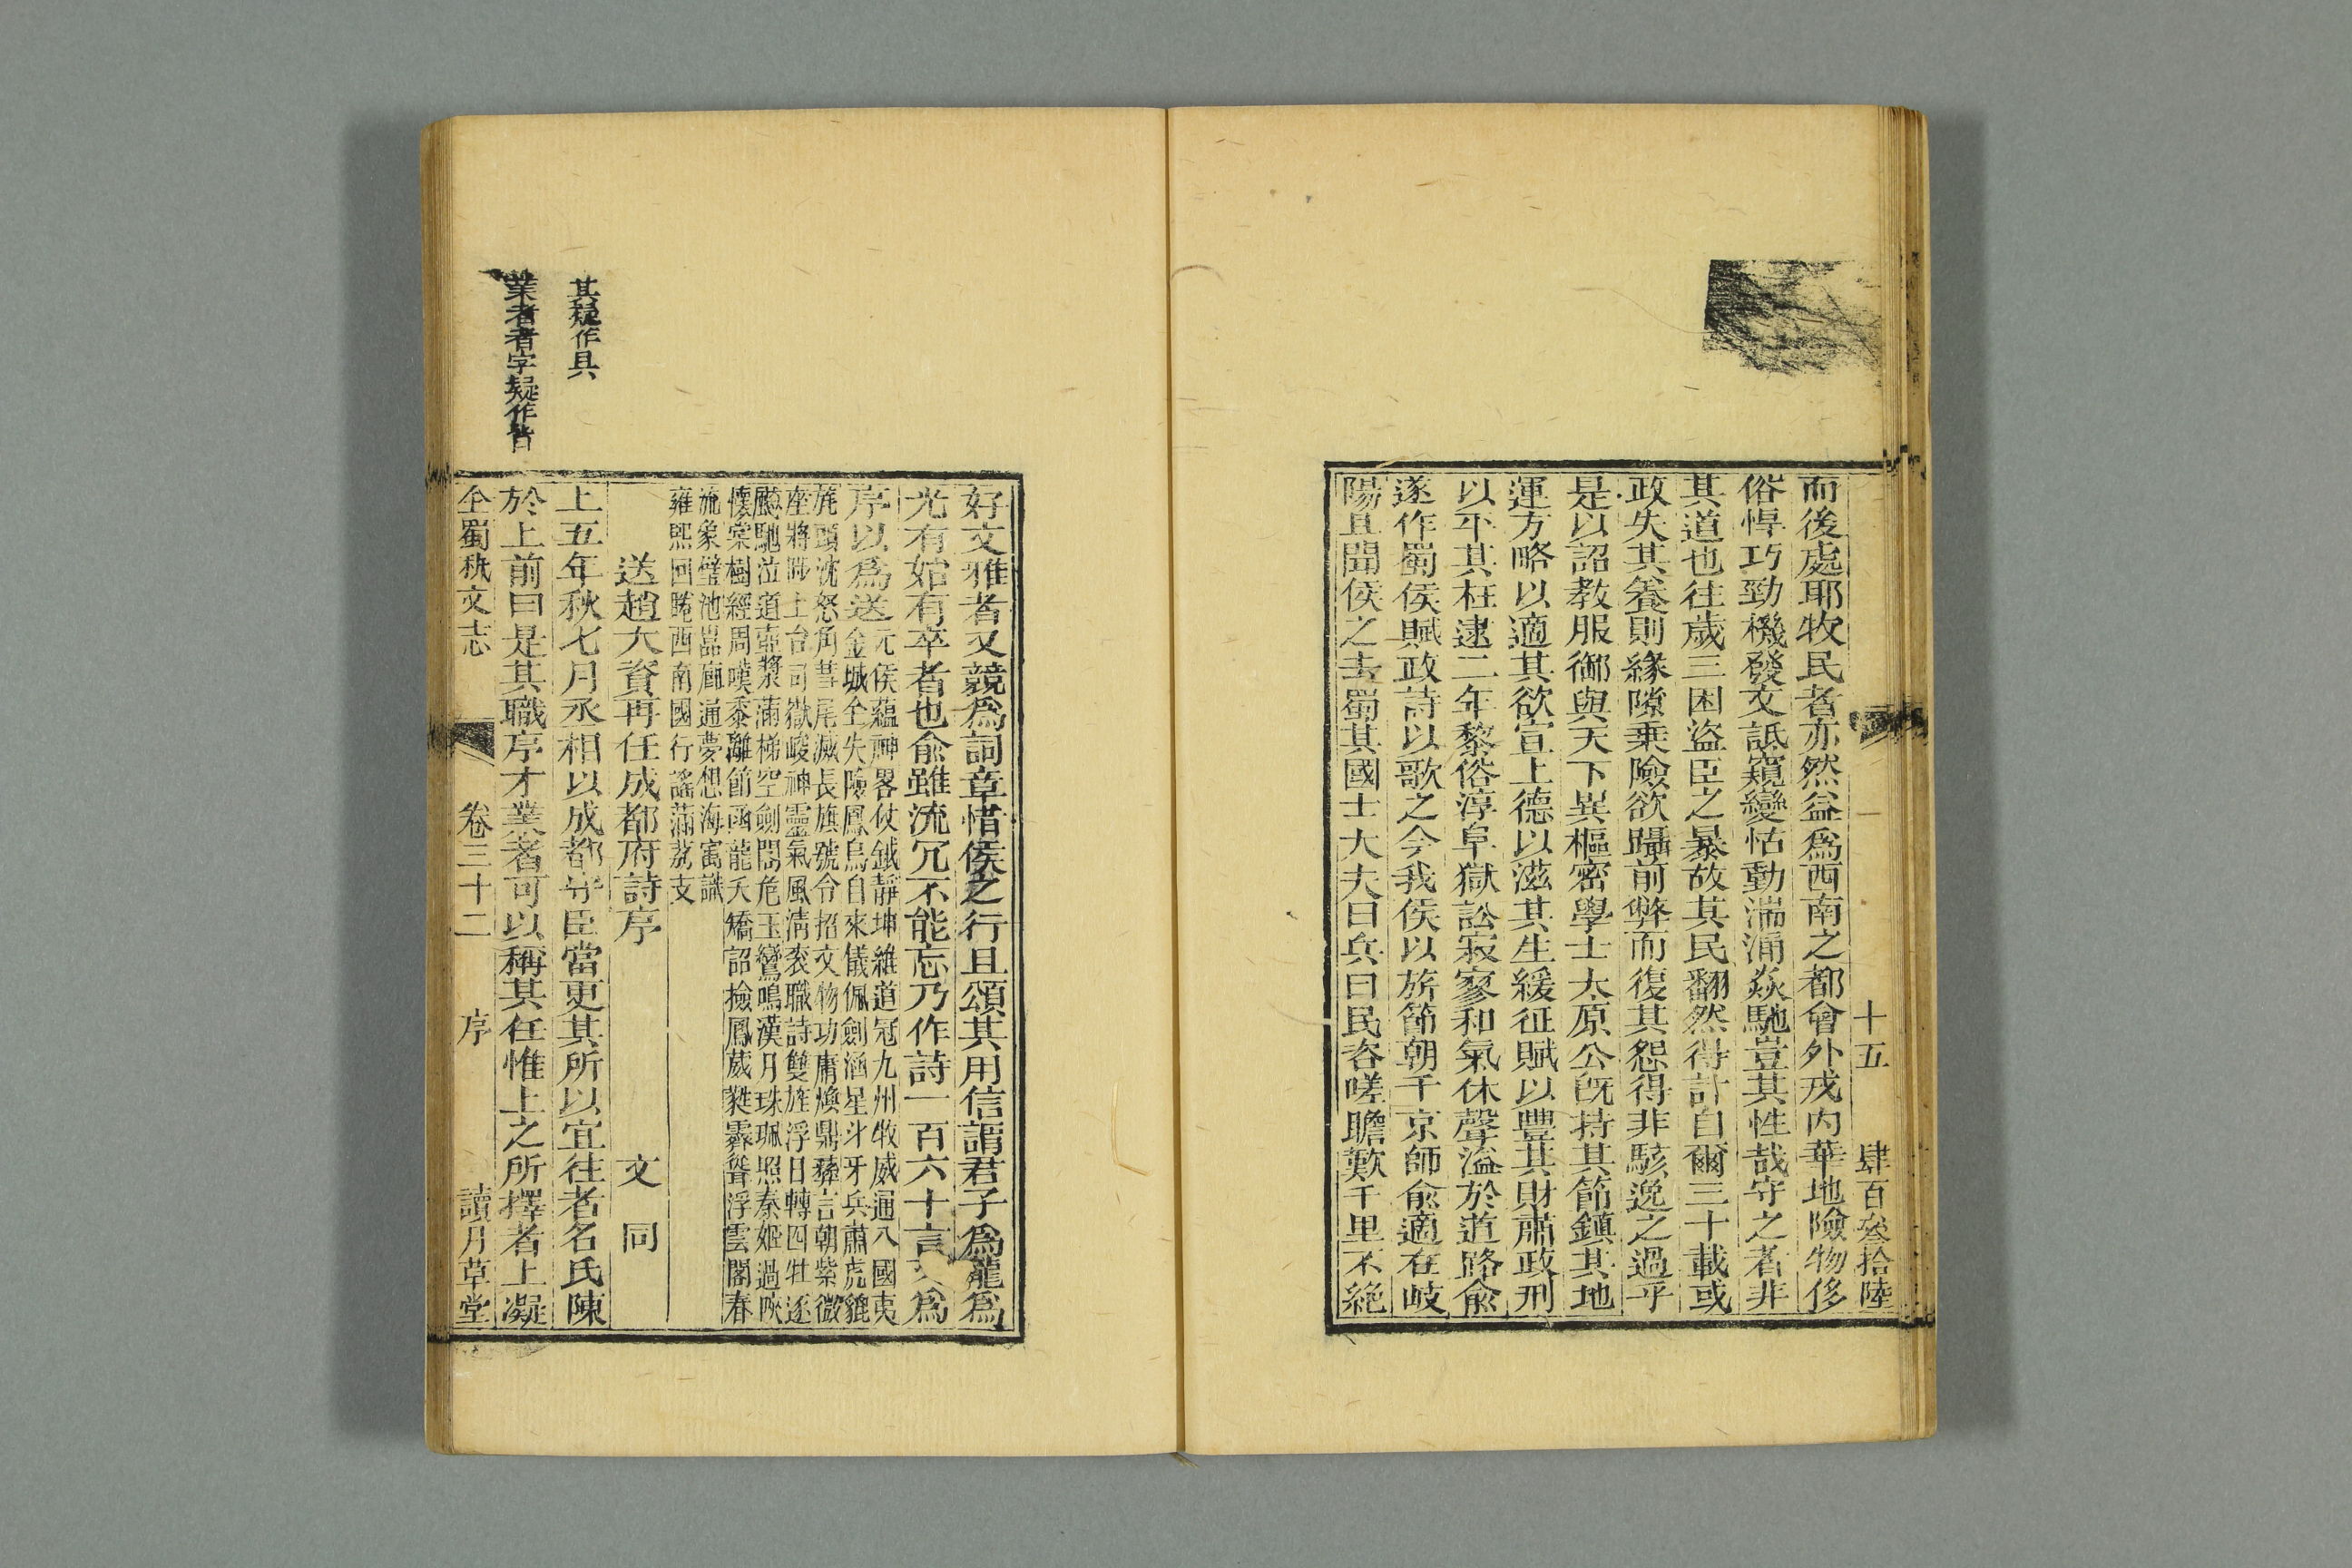 十五 肆百叁拾陸
而後處耶牧民者亦然益爲西南之都會外戎内華地險物侈
俗悍巧勁機發文詆窺變怙動湍涌焱馳豈其性哉守之者非
其道也往歲三困盜臣之暴故其民翻然得計自爾三十載或
政失其養則緣隙乗險欲躡前弊而復其怨得非駭逸之過乎
是以詔教服御與天下異樞密學士太原公旣持其節鎮其地
運方略以適其欲宣上德以滋其生緩征賦以豐其財肅政刑
以平其枉逮二年黎俗淳阜獄訟寂寥和氣休聲溢於道路兪
遂作蜀侯賦政詩以歌之今我侯以旂節朝于京師兪適在岐
陽且聞侯之去蜀其國士大夫曰兵曰民咨嗟瞻歎千里不絶
好文雅者又競爲詞章惜侯之行且頌其用信謂君子爲寵爲
光有始有卒者也兪雖流冗不能忘乃作詩一百六十言爲
序以爲送元侯蘊神畧仗鉞靜坤維道冠九州牧威逼八國夷
金城全失險鳳鳥自來儀佩劍涵星斗牙兵肅虎貔
旄頭沈怒角彗尾滅長旗號令招文物功庸煥鼎彝言朝紫微
座將陟上台司嶽峻神靈氣風清衮職詩雙旌浮日轉四牡逐
飇馳泣道壺漿滿梯空劍閣危玉鸞鳴漢月珠珮照秦姬過陜
懷棠樹經周嘆黍離節函龍夭矯詔撿鳳葳蕤霧聳浮雲閣春
流象璧池嵓廊通夢想海寓識
雍熙回睠西南國行謠滿荔支
送趙大資再任成都府詩序 文同
上五年秋七月丞相以成都守臣當更其所以宜往者名氏陳
其疑作具
於上前曰是其職序才業著可以稱其任惟上之所擇者上凝
業者者字疑作皆
全蜀秇文志 卷三十二 序 讀月草堂